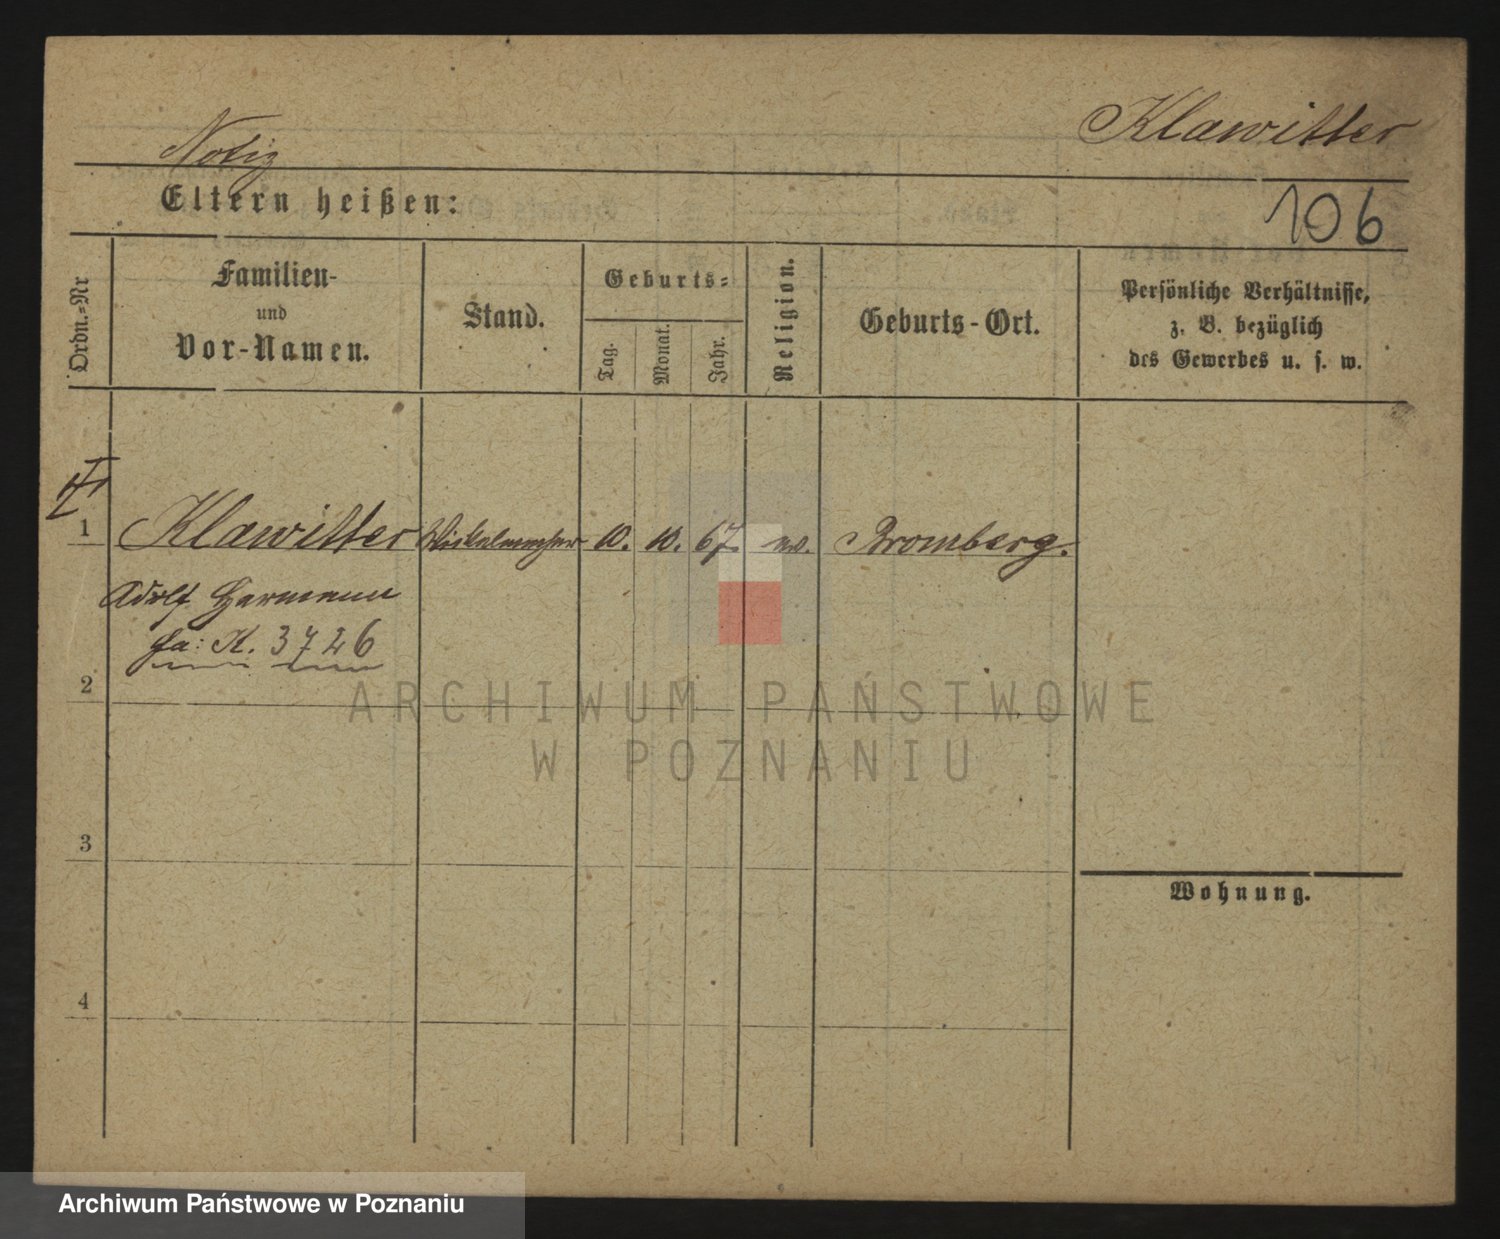 Klawitter
Notiz
Eltern heißen:
106
Ordn.=Nr
Familien-
und
Vor-Namen.
Stand.
Geburts=
Tag.
Monat.
Jahr.
Religion.
Geburts-Ort.
Persönliche Verhältnisse,
z. B. bezüglich
des Gewerbes u. s. w.
1 Klawitter 10. 10. 67. ev. Bromberg.
Adolf Hermann
fa: K. 3726
2
ARCHIWUM PAŃSTWOWE
W POZNANIU
3
Wohnung.
4
Archiwum Państwowe w Poznaniu